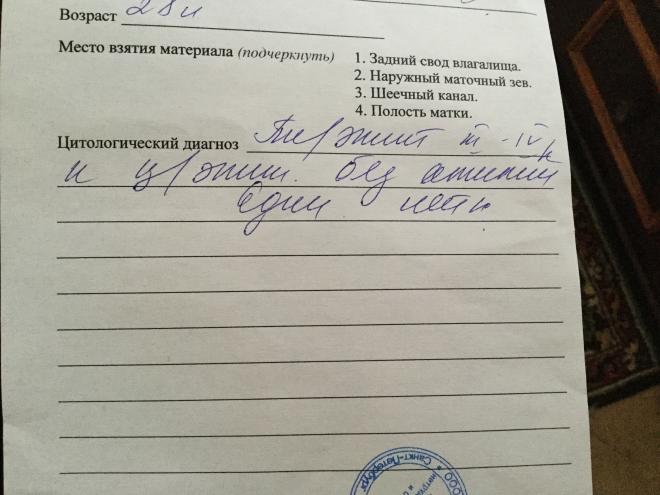 Возраст 28 л
Место взятия материала (подчеркнуть)
1. Задний свод влагалища.
2. Наружный маточный зев.
3. Шеечный канал.
4. Полость матки.
Цитологический диагноз III - IV
и без атипии
Един
ООО
Санкт-Петербург